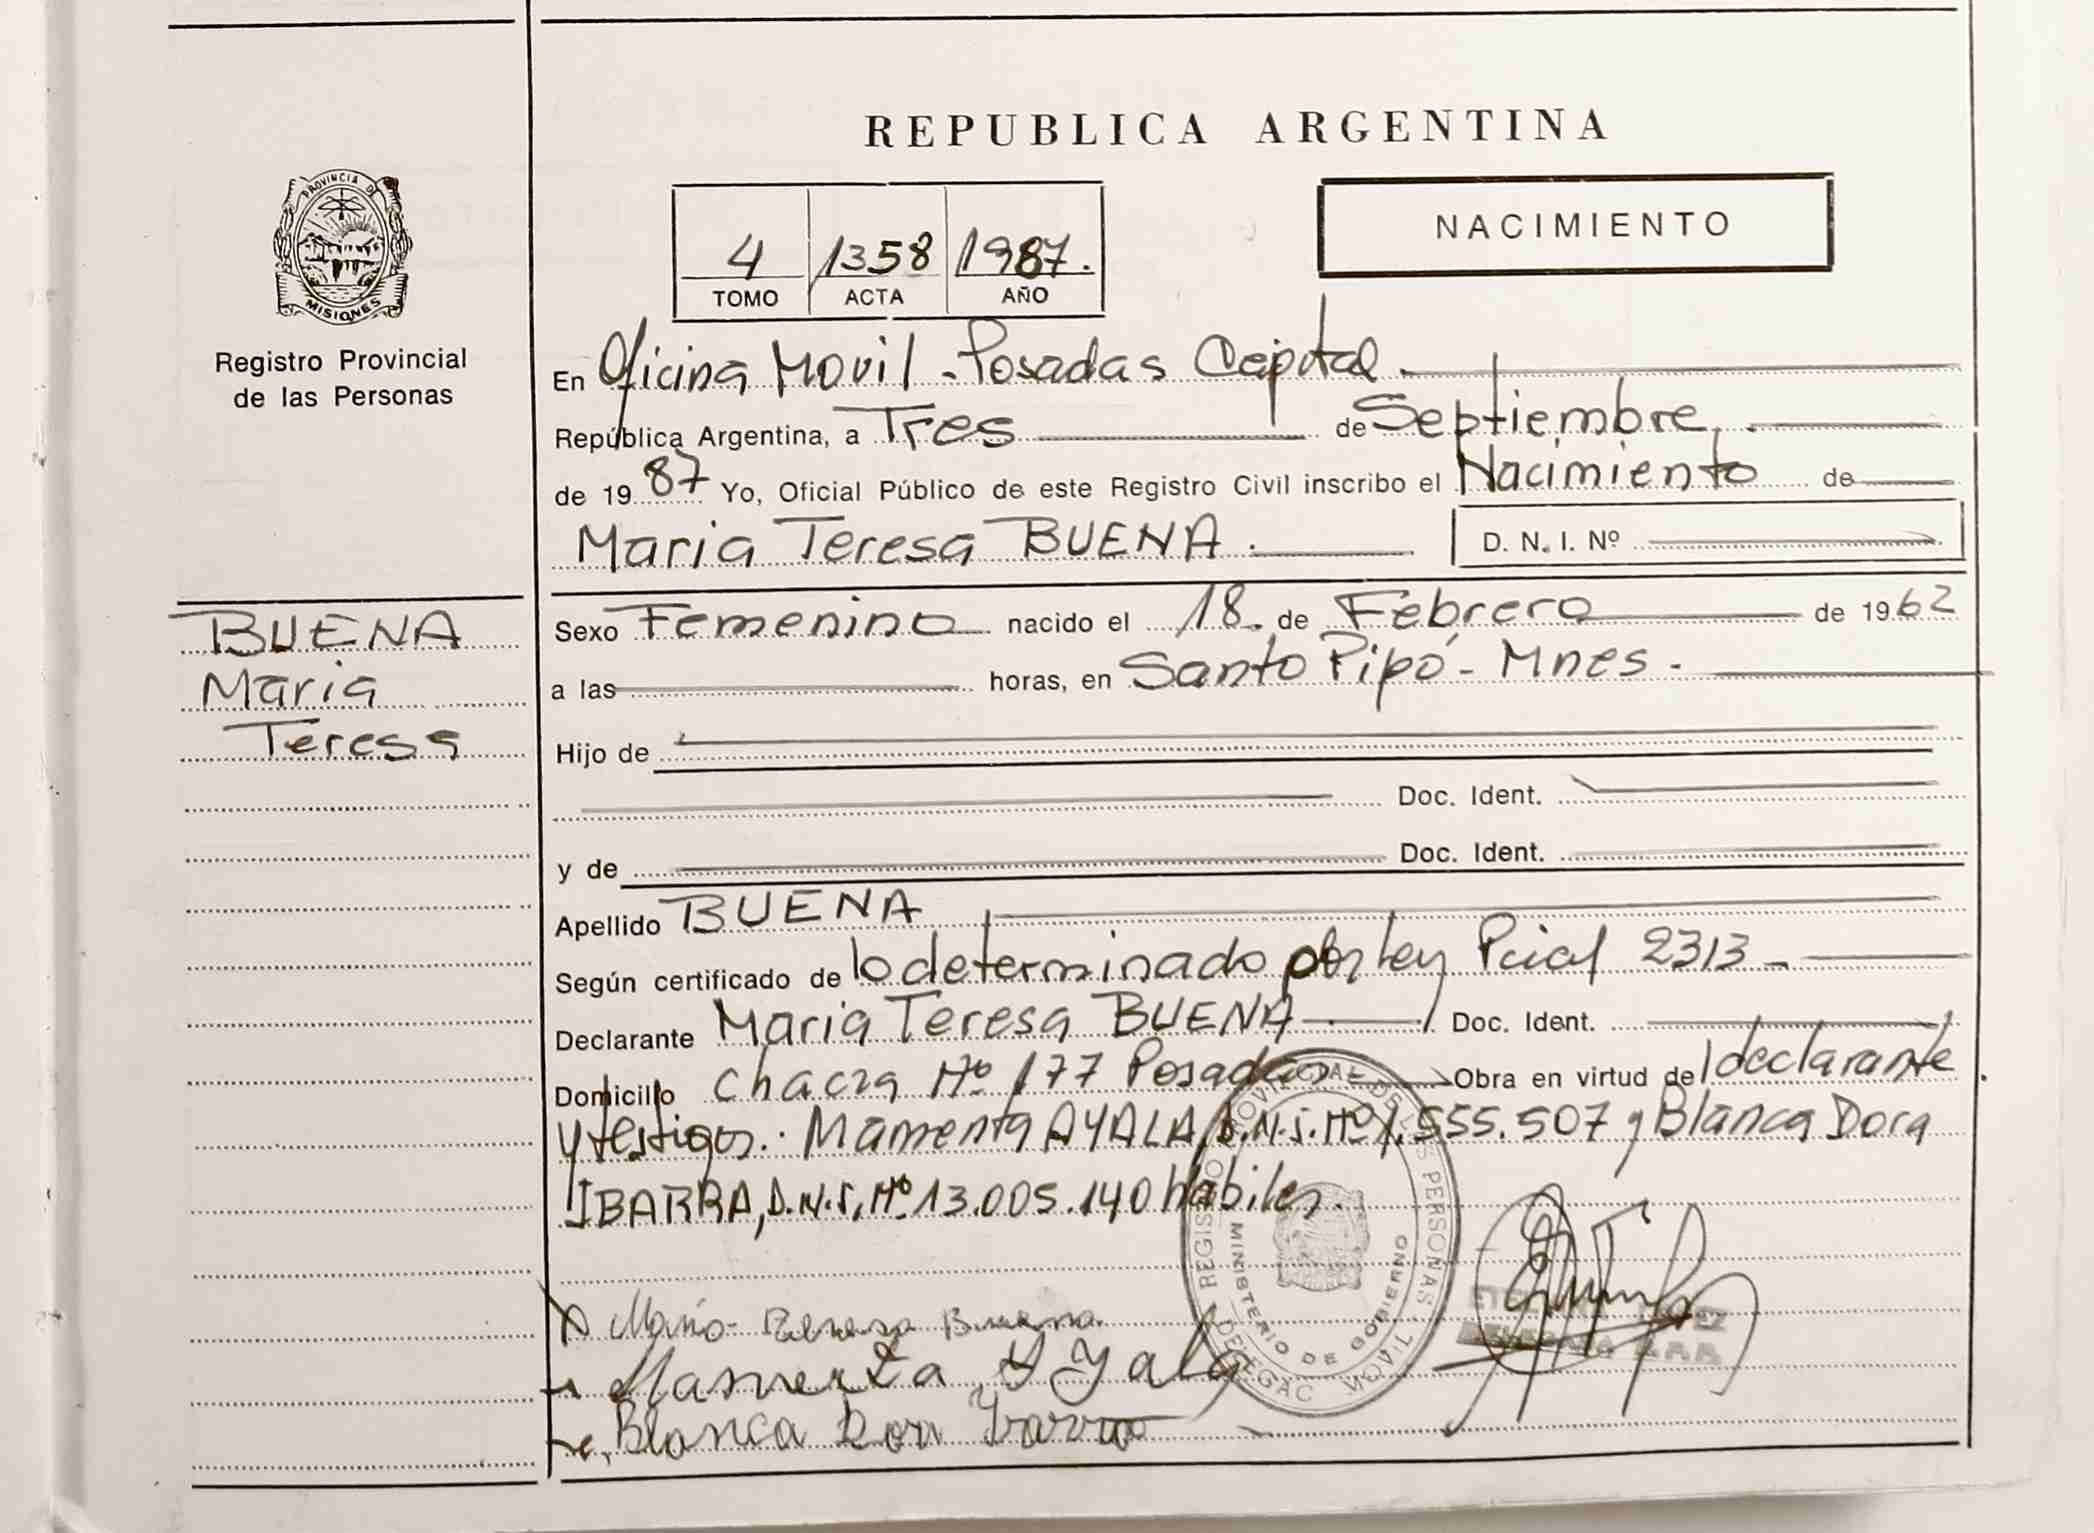 REPUBLICA ARGENTINA
PROVINCIA DE
MISIONES
Registro Provincial
de las Personas
NACIMIENTO
4 1358 1987.
TOMO ACTA AÑO
En Oficina Movil - Posadas Capital
República Argentina, a Tres de Septiembre
de 1987 Yo, Oficial Público de este Registro Civil inscribo el Nacimiento de
Maria Teresa BUENA. D. N. I. Nº
BUENA
Maria
Teresa
Sexo Femenino nacido el 18 de Febrero de 1962
a las horas, en Santo Pipó - Mnes.
Hijo de
Doc. Ident.
y de Doc. Ident.
Apellido BUENA
Según certificado de lo determinado por Ley Pcial 2313
Declarante Maria Teresa BUENA Doc. Ident.
Domicilio Chacra Nº 177 Posadas Obra en virtud de declarante
y testigos: AYALA, D.N.I. Nº 1.555.507 y Blanca Dora
IBARRA, D.N.I. Nº 13.005.140 hábiles.
REGISTRO PROVINCIAL DE LAS PERSONAS
MINISTERIO DE GOBIERNO
DELEGAC MOVIL
Maria Teresa Buena
Ayala
Blanca Dora Ibarra